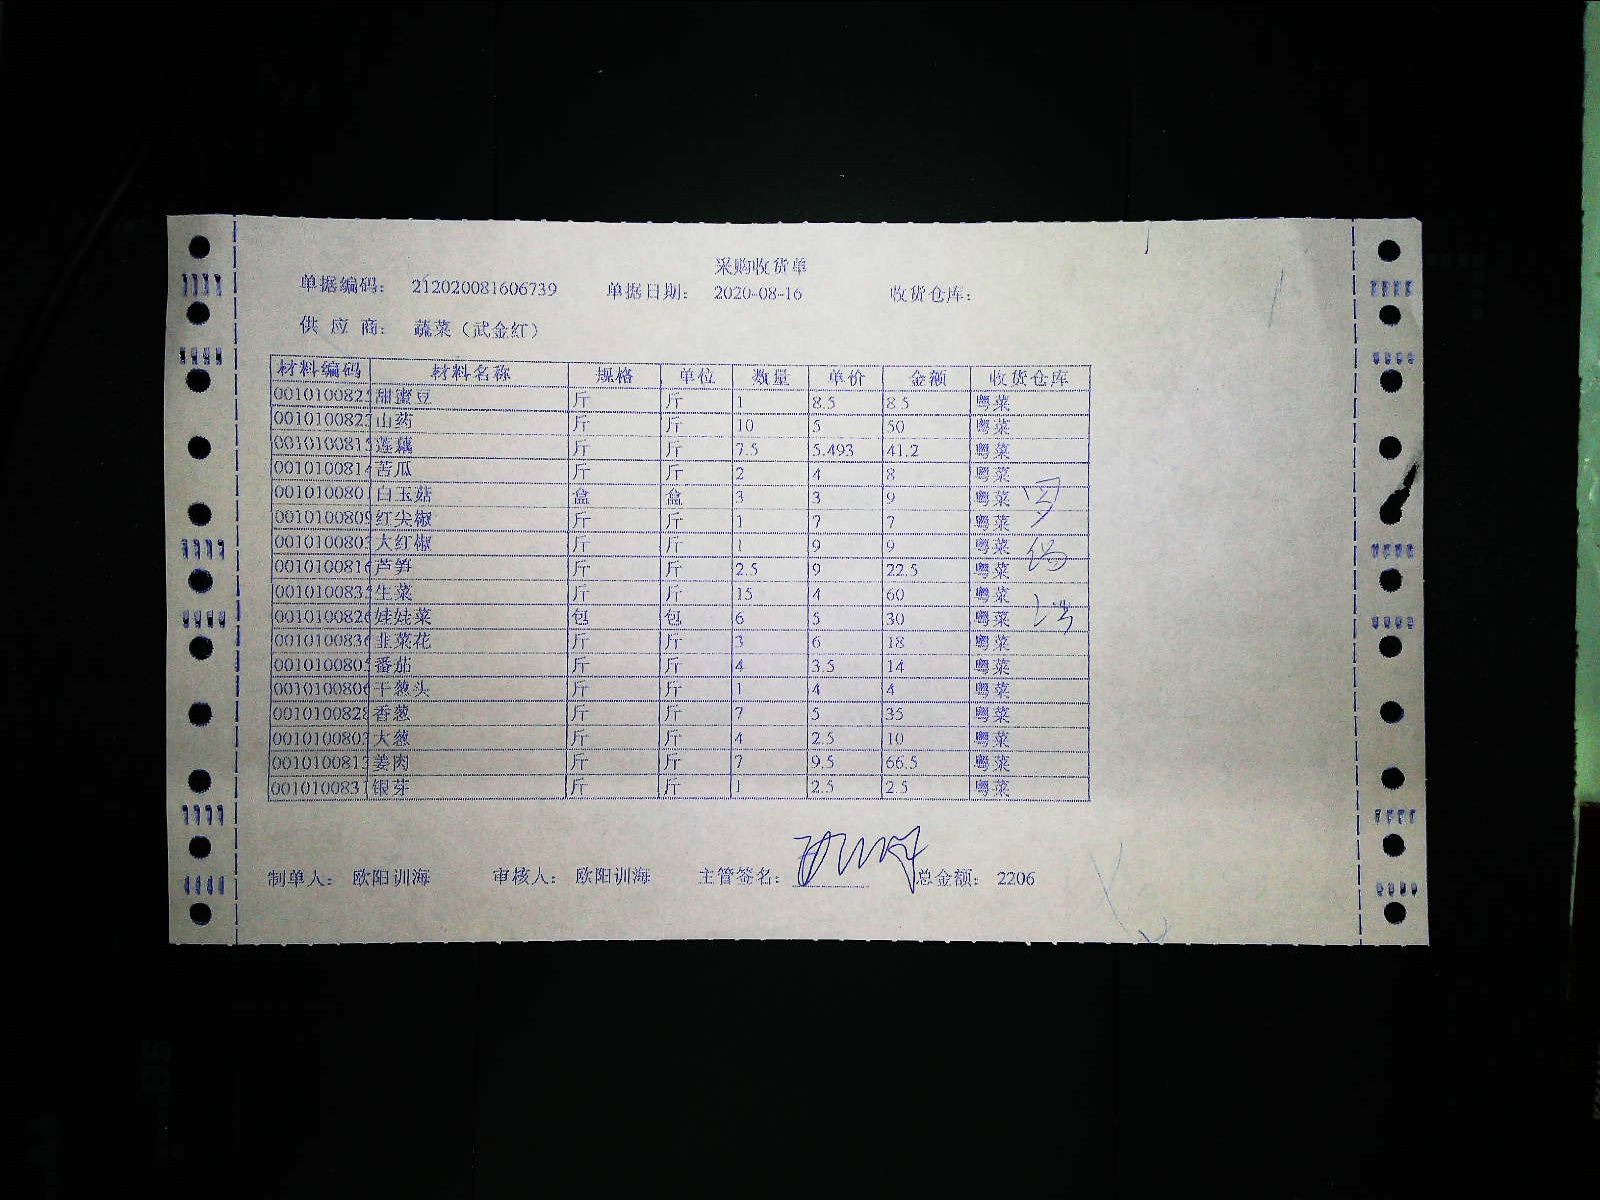 采购收货单
单据编码： 212020081606739 单据日期： 2020-08-16 收货仓库：
供 应 商： 蔬菜（武金红）
材料编码 材料名称 规格 单位 数量 单价 金额 收货仓库
001010082 甜蜜豆 斤 斤 1 8.5 8.5 粤菜
001010082 山药 斤 斤 10 5 50 粤菜
001010081 莲藕 斤 斤 7.5 5.493 41.2 粤菜
001010081 苦瓜 斤 斤 2 4 8 粤菜
001010080 白玉菇 盒 盒 3 3 9 粤菜
001010080 红尖椒 斤 斤 1 7 7 粤菜
001010080 大红椒 斤 斤 1 9 9 粤菜
001010081 芦笋 斤 斤 2.5 9 22.5 粤菜
001010083 生菜 斤 斤 15 4 60 粤菜
001010082 娃娃菜 包 包 6 5 30 粤菜
001010083 韭菜花 斤 斤 3 6 18 粤菜
001010080 番茄 斤 斤 4 3.5 14 粤菜
001010080 干葱头 斤 斤 1 4 4 粤菜
001010082 香葱 斤 斤 7 5 35 粤菜
001010080 大葱 斤 斤 4 2.5 10 粤菜
001010081 姜肉 斤 斤 7 9.5 66.5 粤菜
001010083 银芽 斤 斤 1 2.5 2.5 粤菜
制单人： 欧阳训海 审核人： 欧阳训海 主管签名： 总金额： 2206